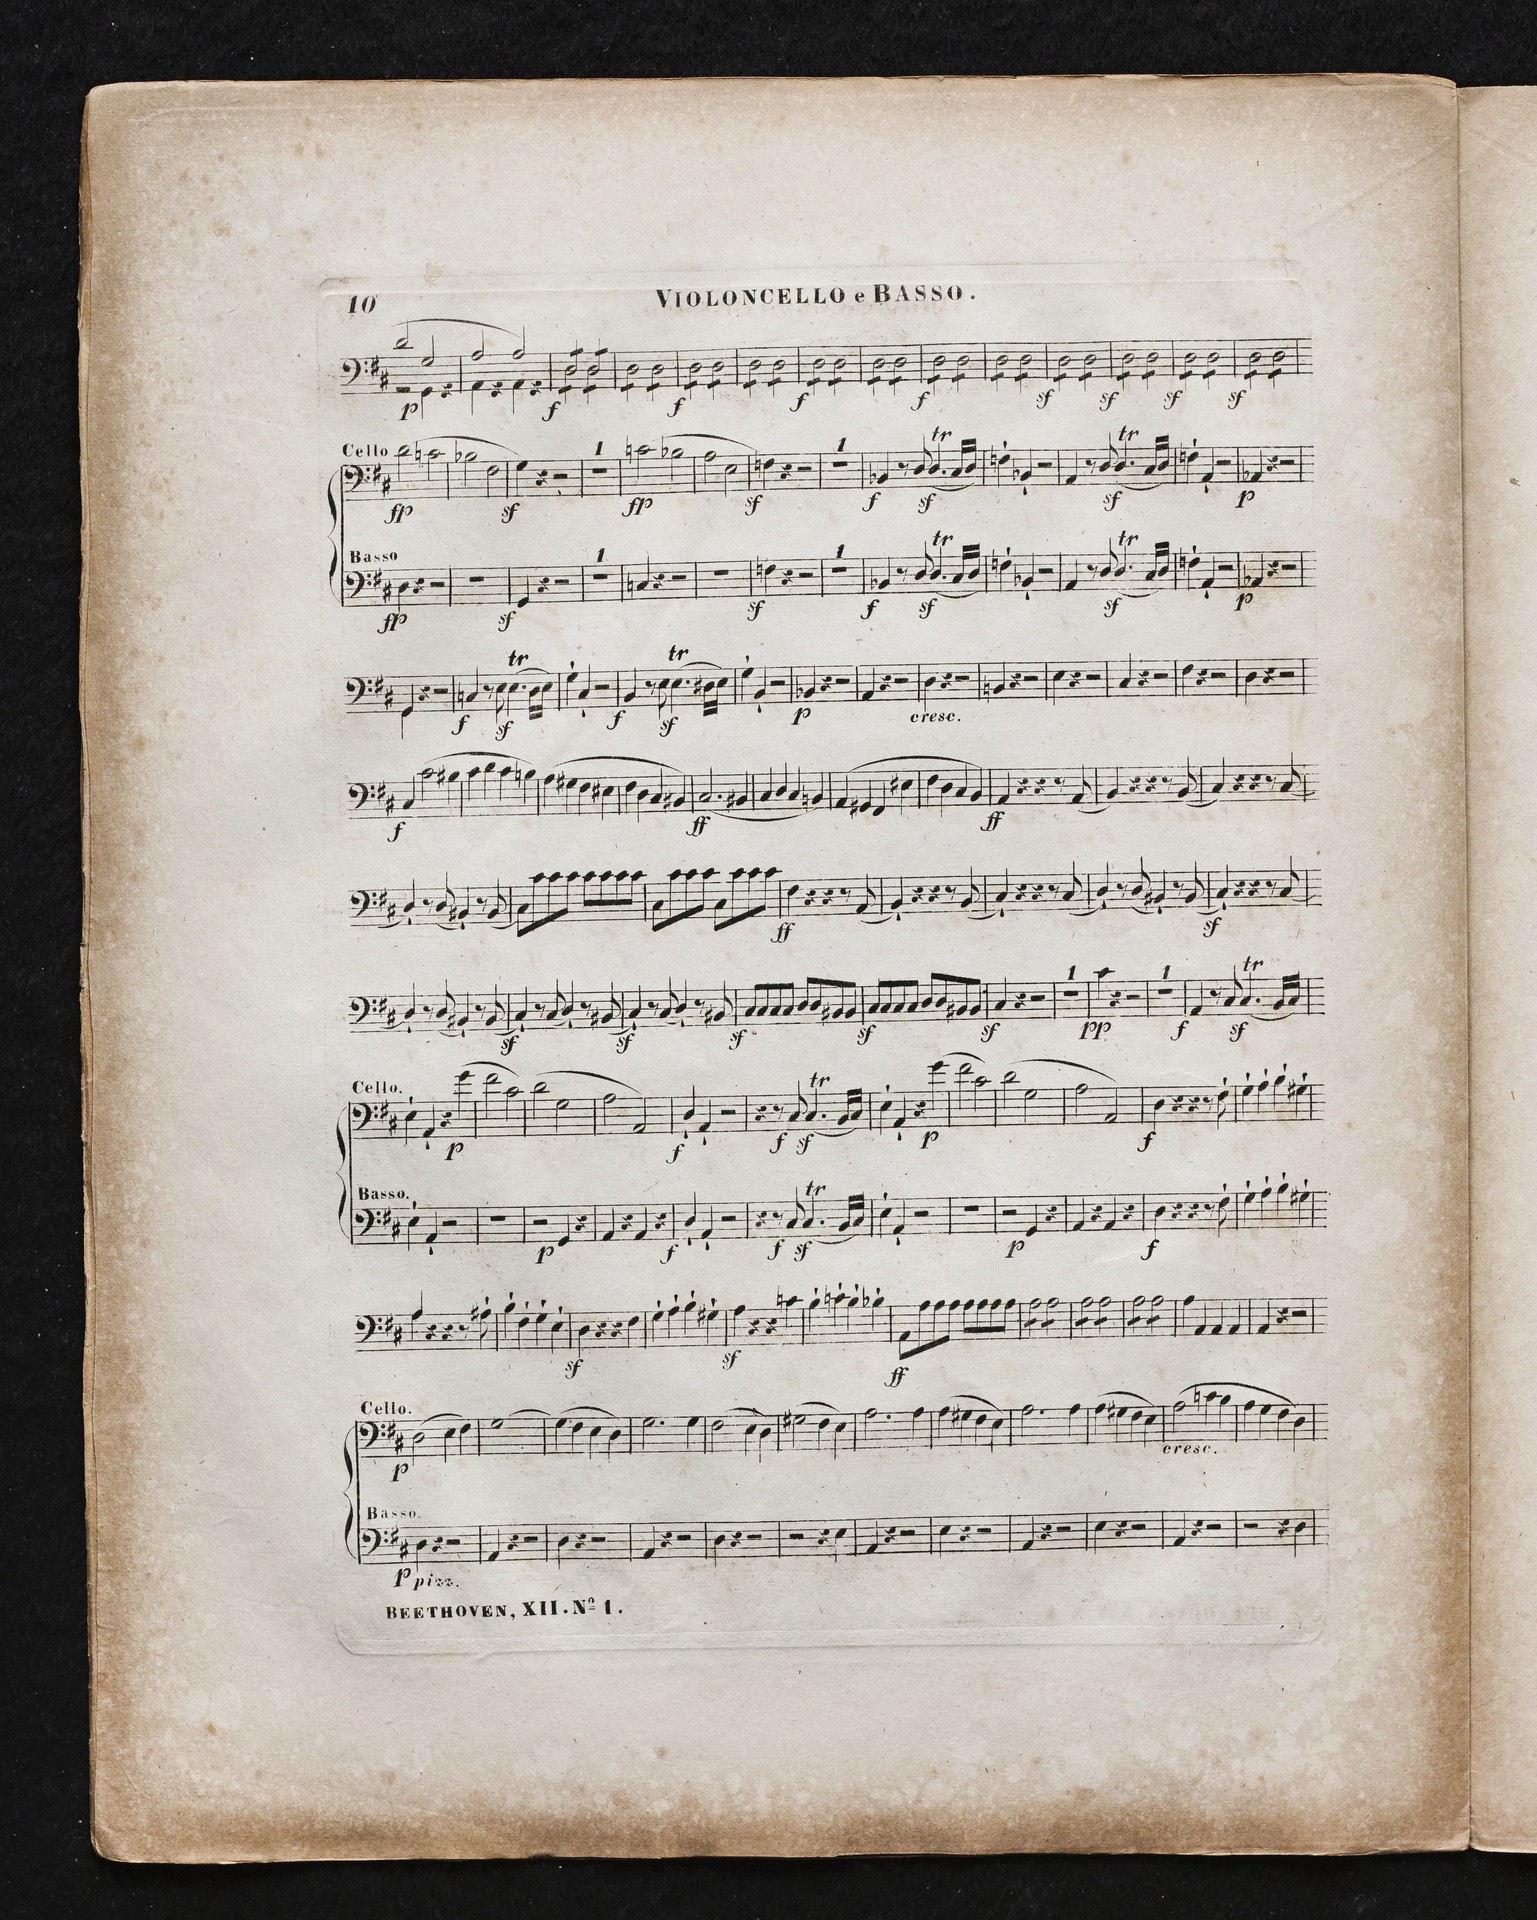 10
VIOLONCELLO e BASSO.
p f f f f sf sf sf sf
Cello
tr tr
1 1
fp sf fp sf f sf sf p
Basso
tr tr
1 1
fp sf sf f sf sf p
tr tr
f sf f sf p cresc.
f ff ff
ff sf
1 1 tr
sf sf sf sf sf pp f sf
Cello.
tr
p f f sf p f
Basso.
tr
p f f sf p f
sf sf ff
Cello.
p cresc.
Basso.
p pizz.
BEETHOVEN, XII. Nº 1.